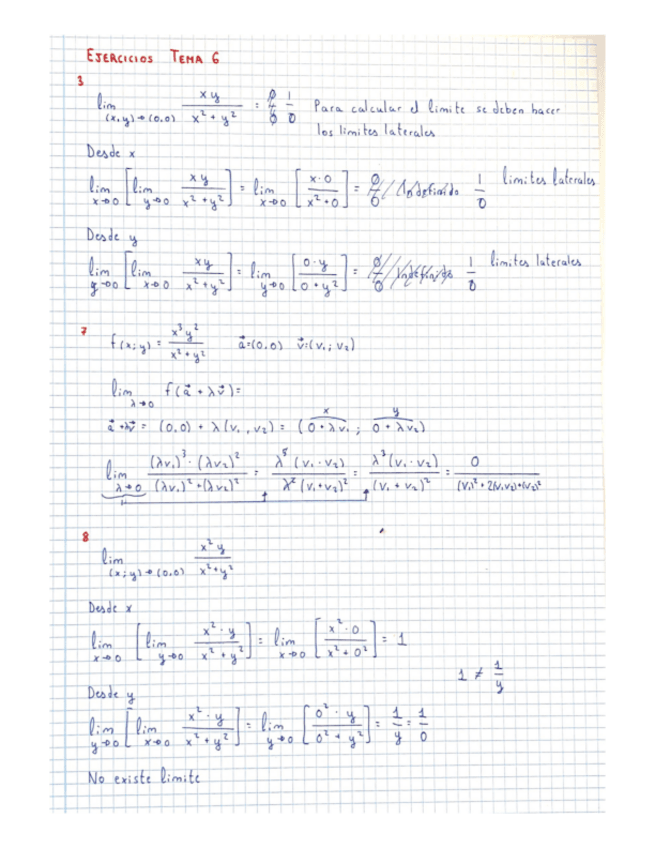 EJERCICIOS TEMA 6
3
lim (x,y)→(0,0) xy / x² + y² = 0/0 1/0 Para calcular el limite se deben hacer
los limites laterales
Desde x
lim x→0 [lim y→0 xy / x² + y²] = lim x→0 [x·0 / x² + 0] = 0/0 Indefinido 1/0 limites laterales
Desde y
lim y→0 [lim x→0 xy / x² + y²] = lim y→0 [0·y / 0 + y²] = 0/0 Indefinido 1/0 limites laterales
7
f(x;y) = x³y² / x² + y² a⃗=(0,0) v⃗=(v₁; v₂)
lim λ→0 f(a⃗ + λv⃗)=
x y
a⃗ + λv⃗ = (0,0) + λ(v₁, v₂) = (0 + λv₁ ; 0 + λv₂)
lim λ→0 (λv₁)³ · (λv₂)² / (λv₁)² + (λv₂)² = λ⁵ (v₁·v₂) / λ² (v₁+v₂)² = λ³ (v₁·v₂) / (v₁ + v₂)² = 0 / (v₁)² + 2(v₁v₂) + (v₂)²
8
lim (x;y)→(0,0) x²y / x² + y²
Desde x
lim x→0 [lim y→0 x²·y / x² + y²] = lim x→0 [x²·0 / x² + 0²] = 1
1 ≠ 1/y
Desde y
lim y→0 [lim x→0 x²·y / x² + y²] = lim y→0 [0²·y / 0² + y²] = 1/y = 1/0
No existe limite